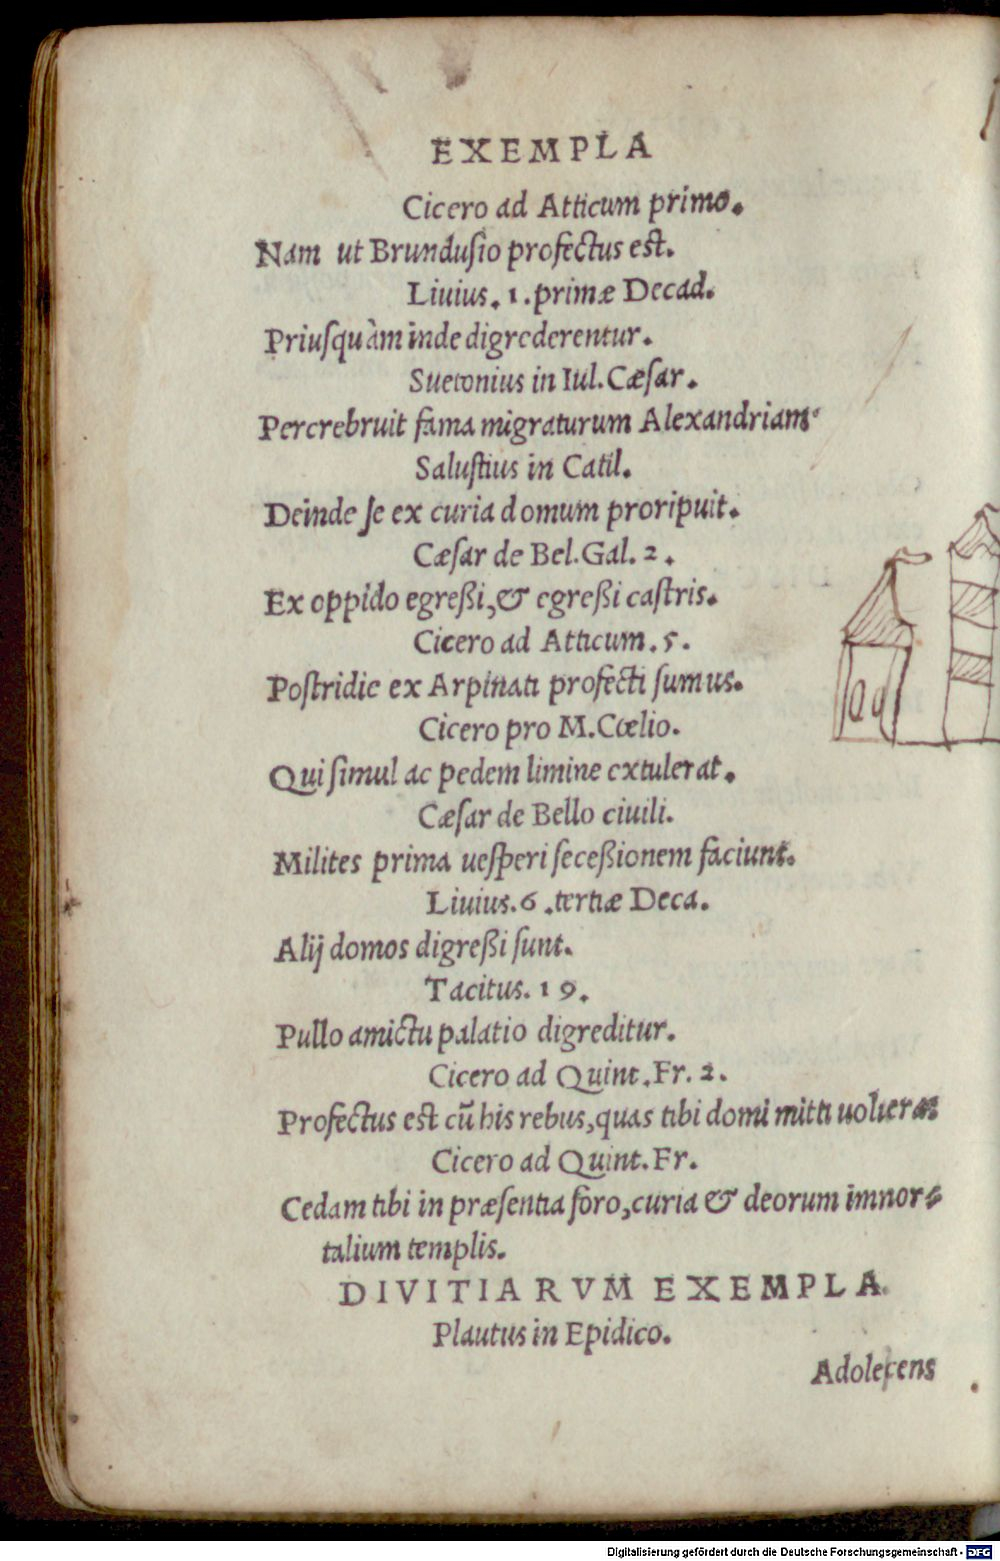 EXEMPLA
Cicero ad Atticum primo.
Nam ut Brunduſio profectus eſt.
Liuius. 1. primæ Decad.
Priuſquàm inde digrederentur.
Suetonius in Iul. Cæſar.
Percrebruit fama migraturum Alexandriam
Saluſtius in Catil.
Deinde ſe ex curia domum proripuit.
Cæſar de Bel. Gal. 2.
Ex oppido egreßi, & egreßi caſtris.
Cicero ad Atticum. 5.
Poſtridie ex Arpinati profecti ſumus.
Cicero pro M. Cœlio.
Qui ſimul ac pedem limine extulerat.
Cæſar de Bello ciuili.
Milites prima ueſperi ſeceßionem faciunt.
Liuius. 6. tertiæ Deca.
Alij domos digreßi ſunt.
Tacitus. 19.
Pullo amictu palatio digreditur.
Cicero ad Quint. Fr. 2.
Profectus eſt cū his rebus, quas tibi domi mitti
Cicero ad Quint. Fr.
Cedam tibi in præſentia foro, curia & deorum imnor⸗
talium templis.
DIVITIARVM EXEMPLA.
Plautus in Epidico.
Adoleſcens
Digitalisierung gefördert durch die Deutsche Forschungsgemeinschaft - DFG